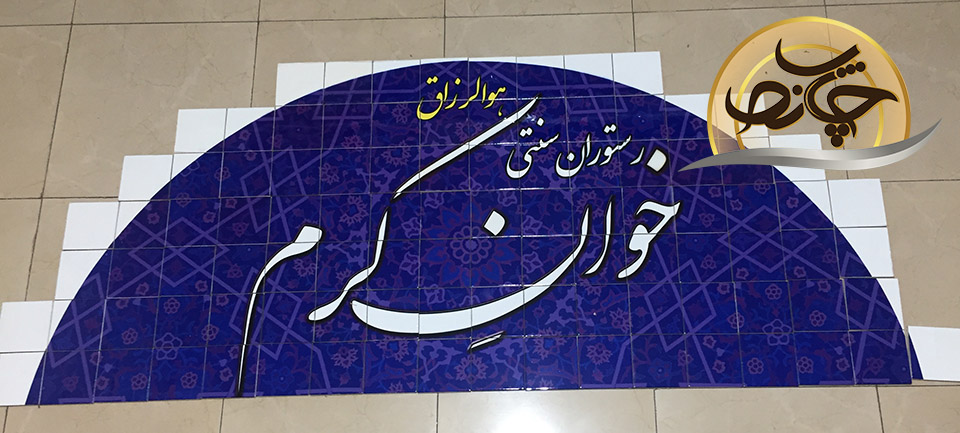 هوالرزاق
رستوران سنتی
خوانِ کرم